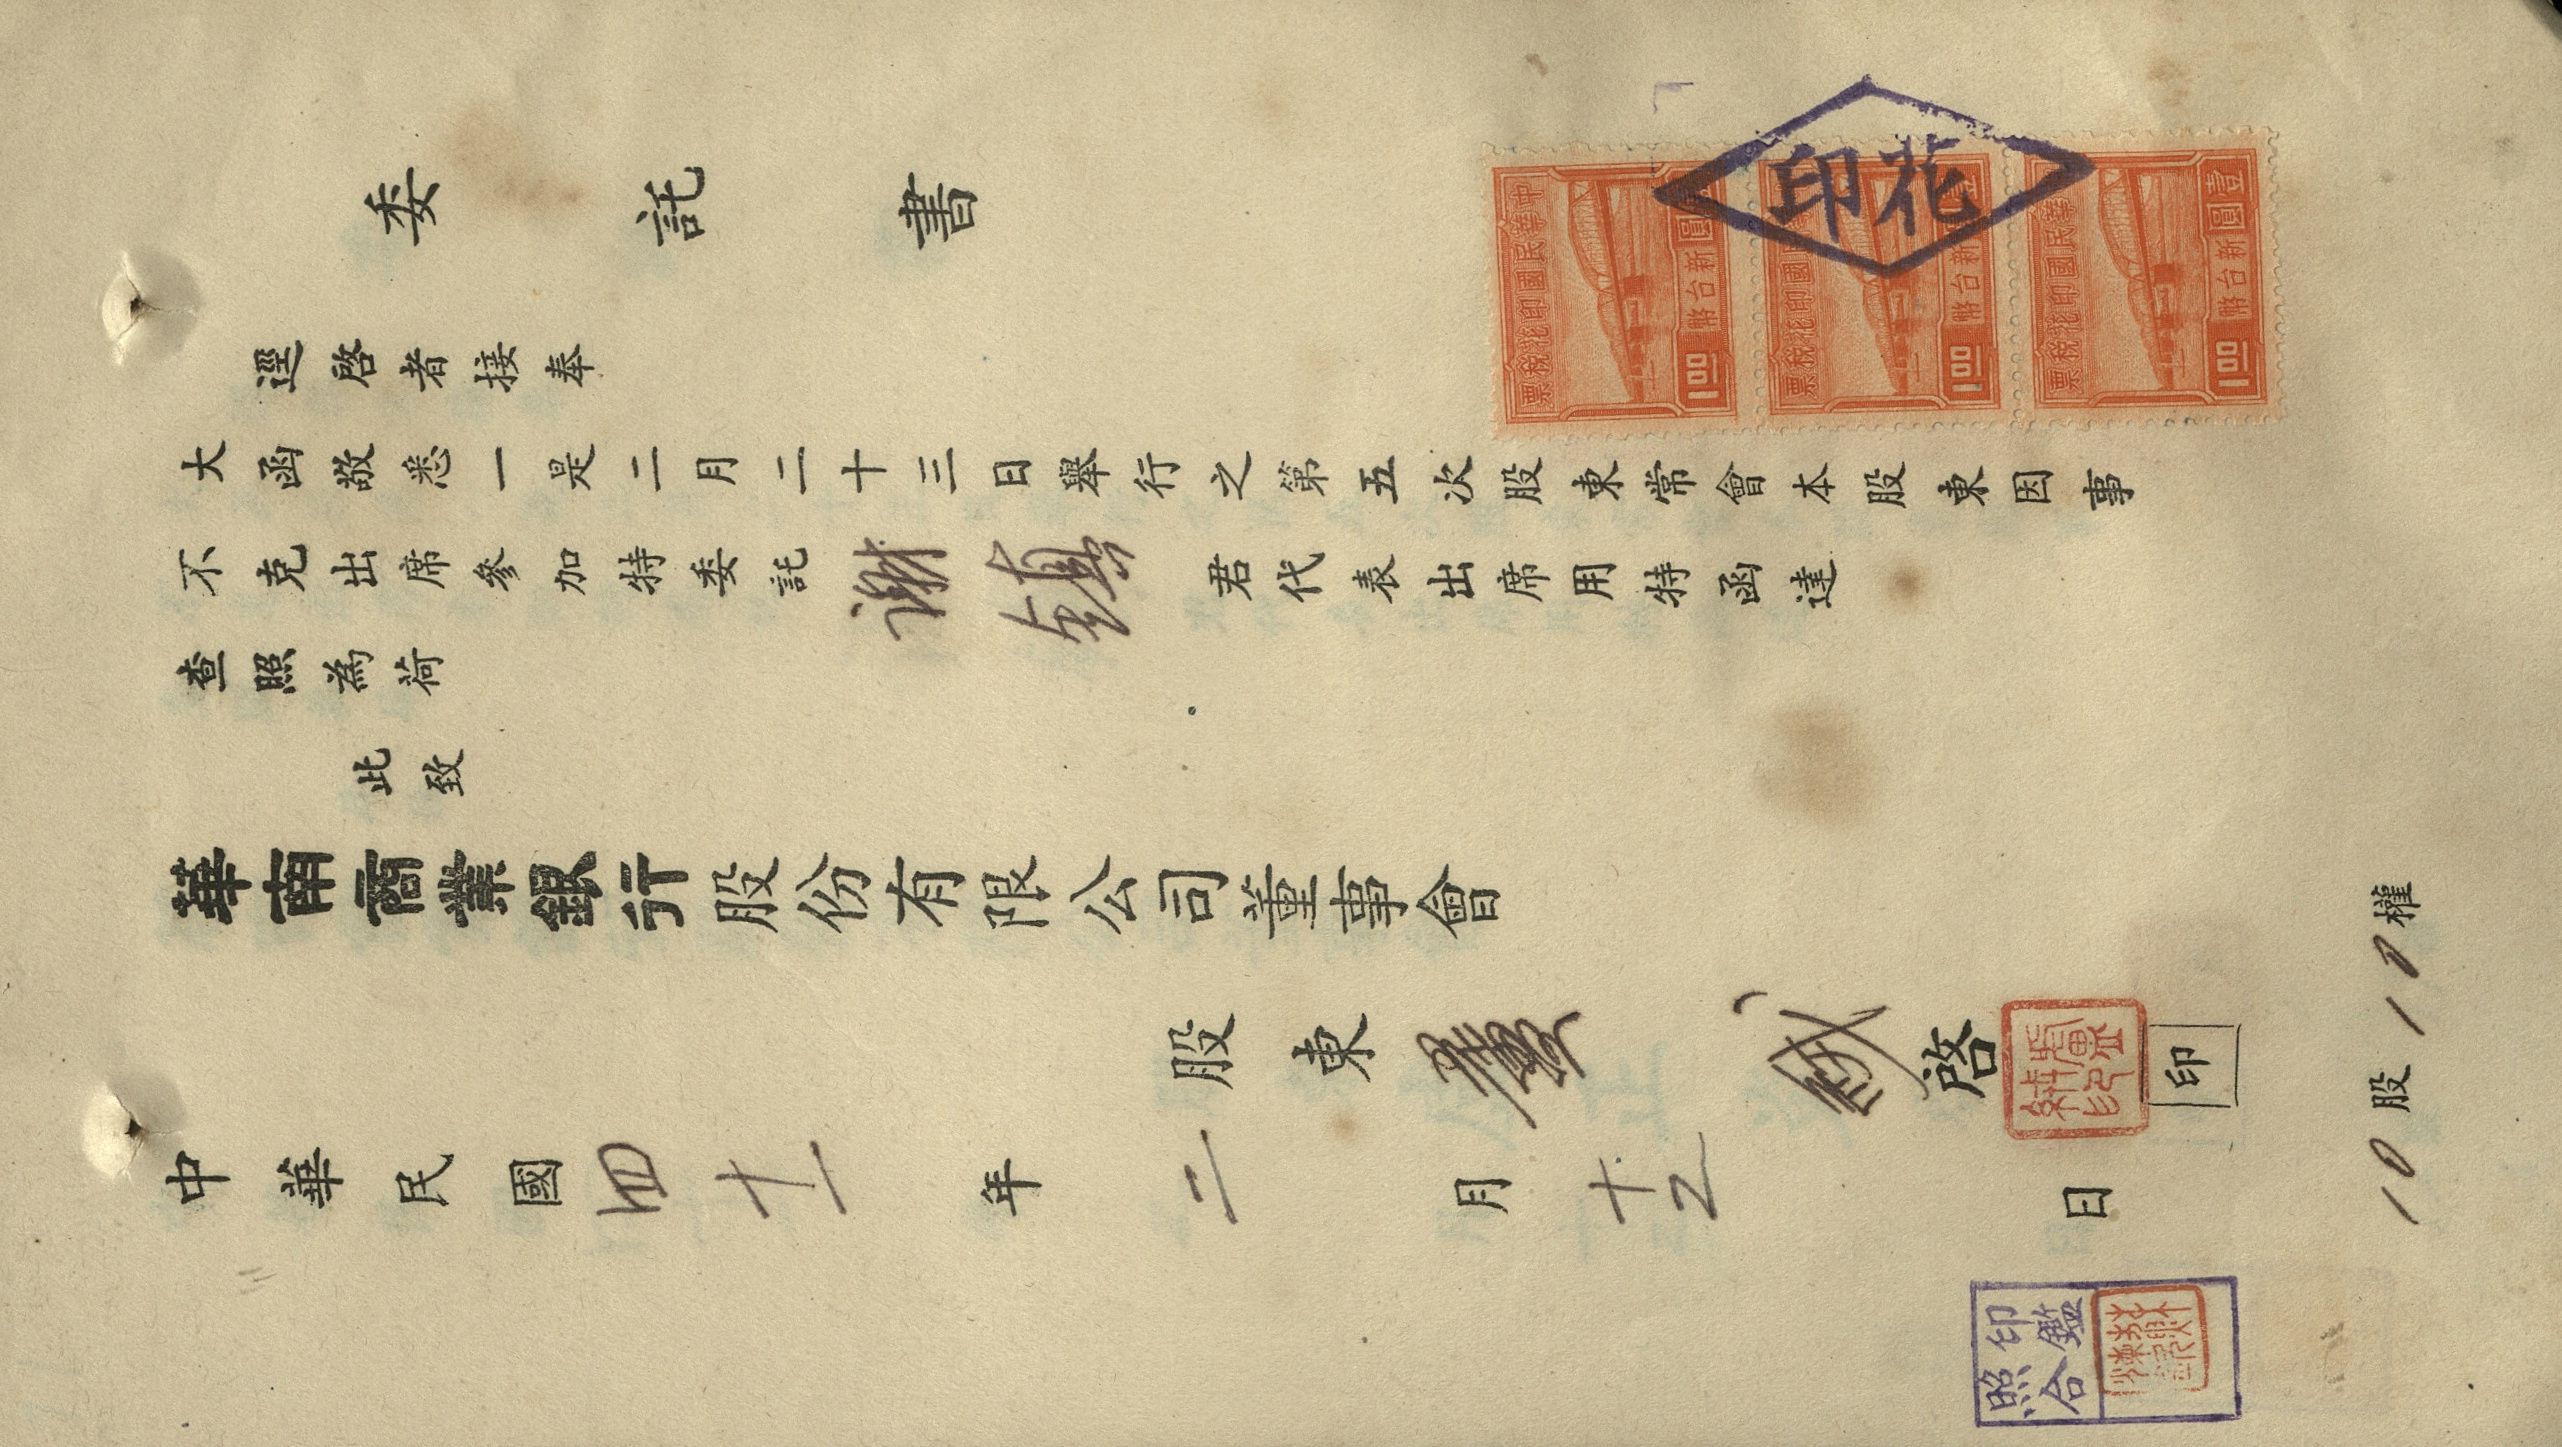 委託書
逕啓者接奉
大函敬悉一是二月二十三日舉行之第五次股東常會本股東因事
不克出席參加特委託謝鎮君代表出席用特函達
查照為荷
此致
華南商業銀行股份有限公司董事會
股東 啓 印
中華民國四十一年二月十五日
10股10權
印花
中華民國印花稅票
壹圓
新台幣
1.00
中華民國印花稅票
新台幣
1.00
中華民國印花稅票
壹圓
新台幣
1.00
印鑑
照合